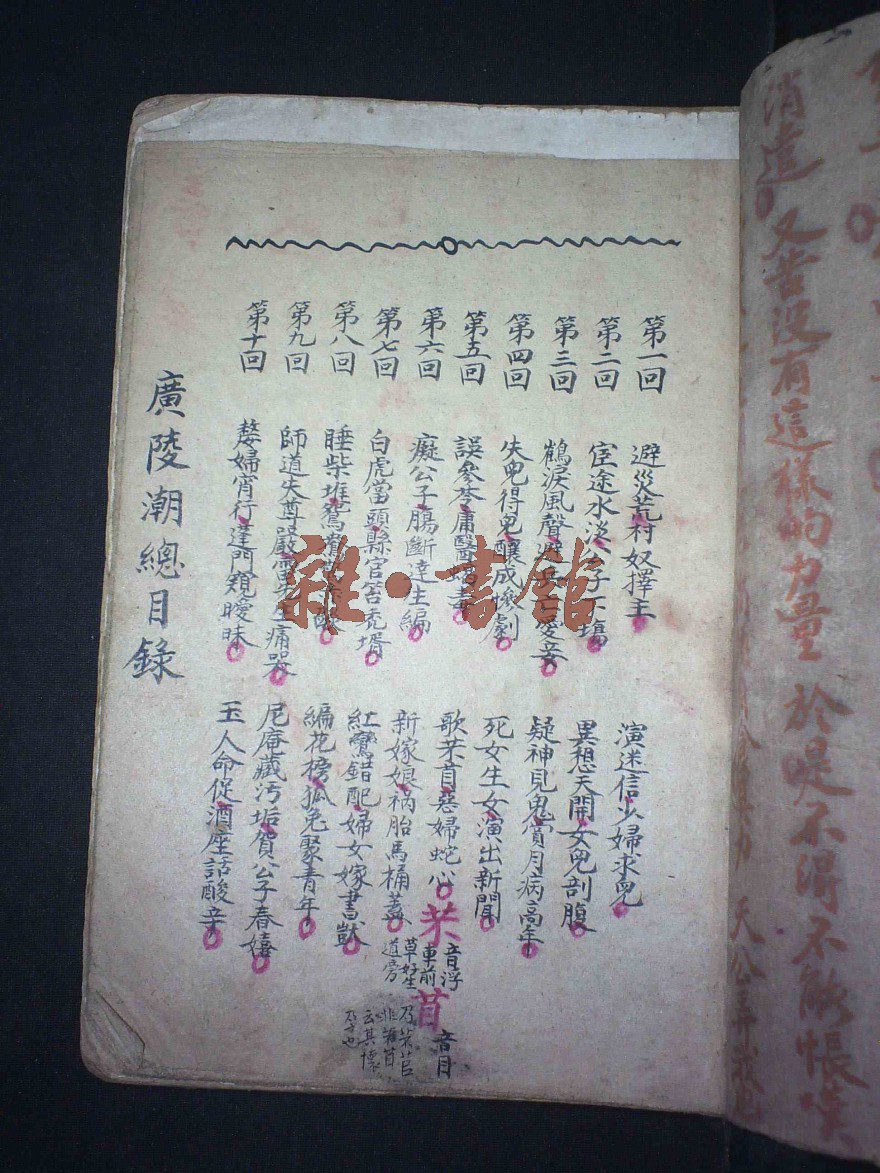 消遣 又苦沒有這樣的力量 於是不得不
第一回 避災荒村奴擇主 演迷信少婦求兒
第二回 宦途水淡公子下塲 異想天開女兒剖腹
第三回 鶴淚風聲避兵亡愛妾 疑神見鬼賞月病高年
第四回 失兒得兒釀成慘劇 死女生女演出新聞
第五回 誤參苓庸醫增毒 歌芣苢惡婦蛇心
芣 音浮 車前草 好生道旁
苢 音目
第六回 癡公子腸斷達生編 新嫁娘禍胎馬桶蓋
第七回 白虎當頭縣官笞虎壻 紅鸞錯配婦女嫁書獃
第八回 睡柴堆鴛鴦 編花榜狐兔聚青年
第九回 師道失尊嚴雷先生痛 尼庵藏污垢賀公子春嬉
第十回 嫠婦宵行蓬門窺曖昧 玉人命促酒座話酸辛
廣陵潮總目錄
雜·書館